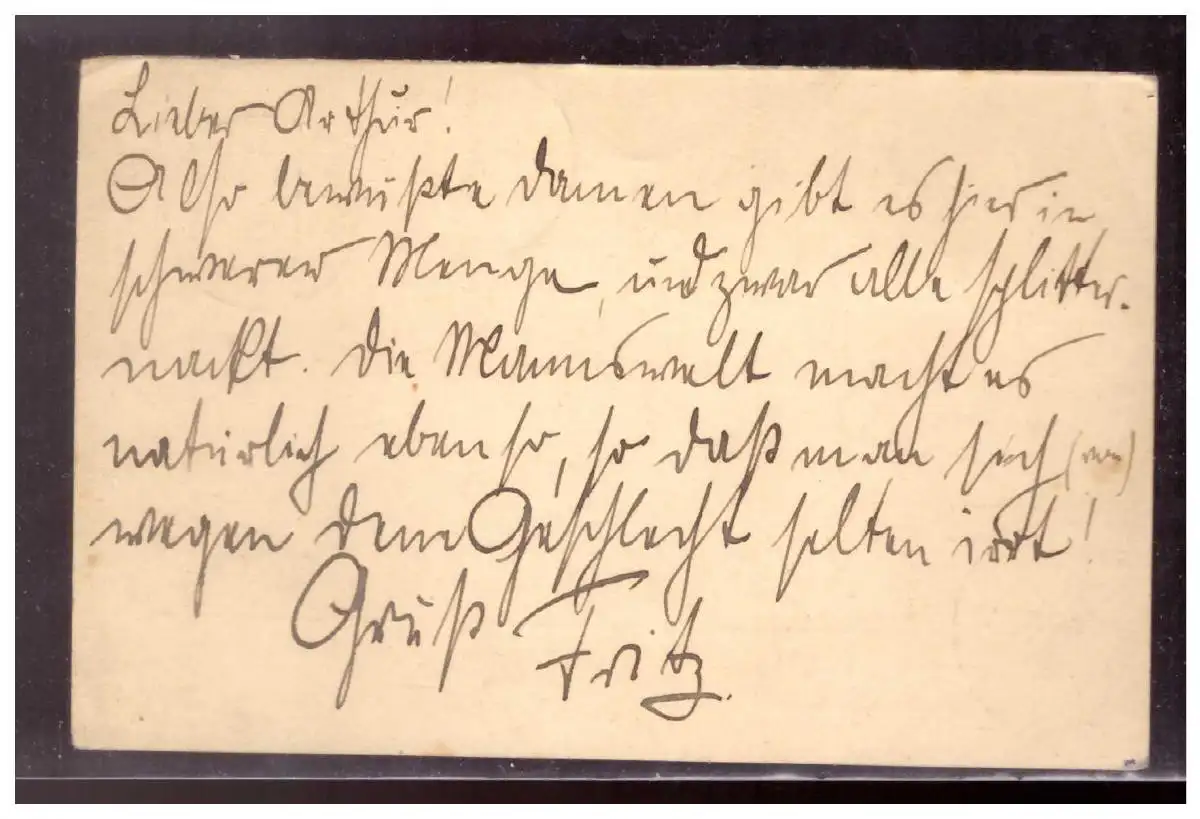 Lieber Arthur!
Also bewußte Damen gibt es hier in
schwerer Menge, und zwar alle splitter-
nackt. Die Mannswelt macht es
natürlich ebenso, so daß man sich
wegen dem Geschlecht selten irrt!
Gruß Fritz.